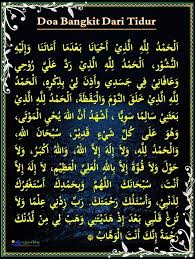 Doa Bangkit Dari Tidur
اَلْحَمْدُ لِلَّهِ الَّذِيْ اَحْيَانَا بَعْدَمَا اَمَاتَنَا وَاِلَيْهِ
النُّشُوْرُ، اَلْحَمْدُ لِلَّهِ الَّذِيْ رَدَّ عَلَيَّ رُوْحِيْ
وَعَافَانِيْ فِيْ جَسَدِيْ وَأَذِنَ لِيْ بِذِكْرِهِ، اَلْحَمْدُ
لِلَّهِ الَّذِيْ خَلَقَ النَّوْمَ وَالْيَقَظَةَ، اَلْحَمْدُ لِلَّهِ الَّذِيْ
بَعَثَنِيْ سَالِمًا سَوِيًّا، أَشْهَدُ أَنَّ اللهَ يُحْيِ الْمَوْتَى،
وَهُوَ عَلَى كُلِّ شَيْءٍ قَدِيْرٌ، سُبْحَانَ اللهِ،
وَالْحَمْدُ لِلَّهِ، وَلَا إِلَهَ إِلَّا اللهُ، وَاللهُ أَكْبَرُ، وَلَا
حَوْلَ وَلَا قُوَّةَ إِلَّا بِاللهِ الْعَلِيِّ الْعَظِيْمِ، لَا إِلَهَ إِلَّا
أَنْتَ، سُبْحَانَكَ اللَّهُمَّ وَبِحَمْدِكَ أَسْتَغْفِرُكَ
لِذَنْبِيْ، وَأَسْأَلُكَ رَحْمَتَكَ، رَبِّ زِدْنِيْ عِلْمًا وَلَا
تُزِغْ قَلْبِيْ بَعْدَ إِذْ هَدَيْتَنِيْ وَهَبْ لِيْ مِنْ لَدُنْكَ
رَحْمَةً إِنَّكَ أَنْتَ الْوَهَّابُ